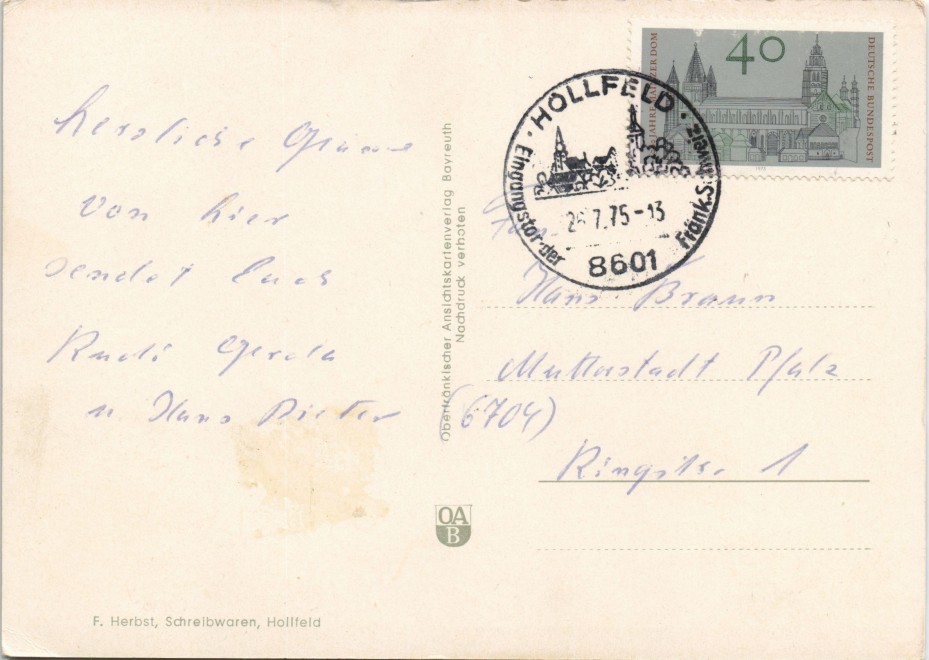 herzliche Grüsse
von hier
sendet Euch
Rudi Gerda
u Hans Dieter
F. Herbst, Schreibwaren, Hollfeld
Oberfränkischer Ansichtskartenverlag Bayreuth
Nachdruck verboten
OA
B
40
JAHRE MAINZER DOM
DEUTSCHE BUNDESPOST
· HOLLFELD ·
Eingangstor der Fränk. Schweiz
7.75-13
8601
Fam.
Hans Braun
Mutterstadt Pfalz
(6704)
Ringstr. 1